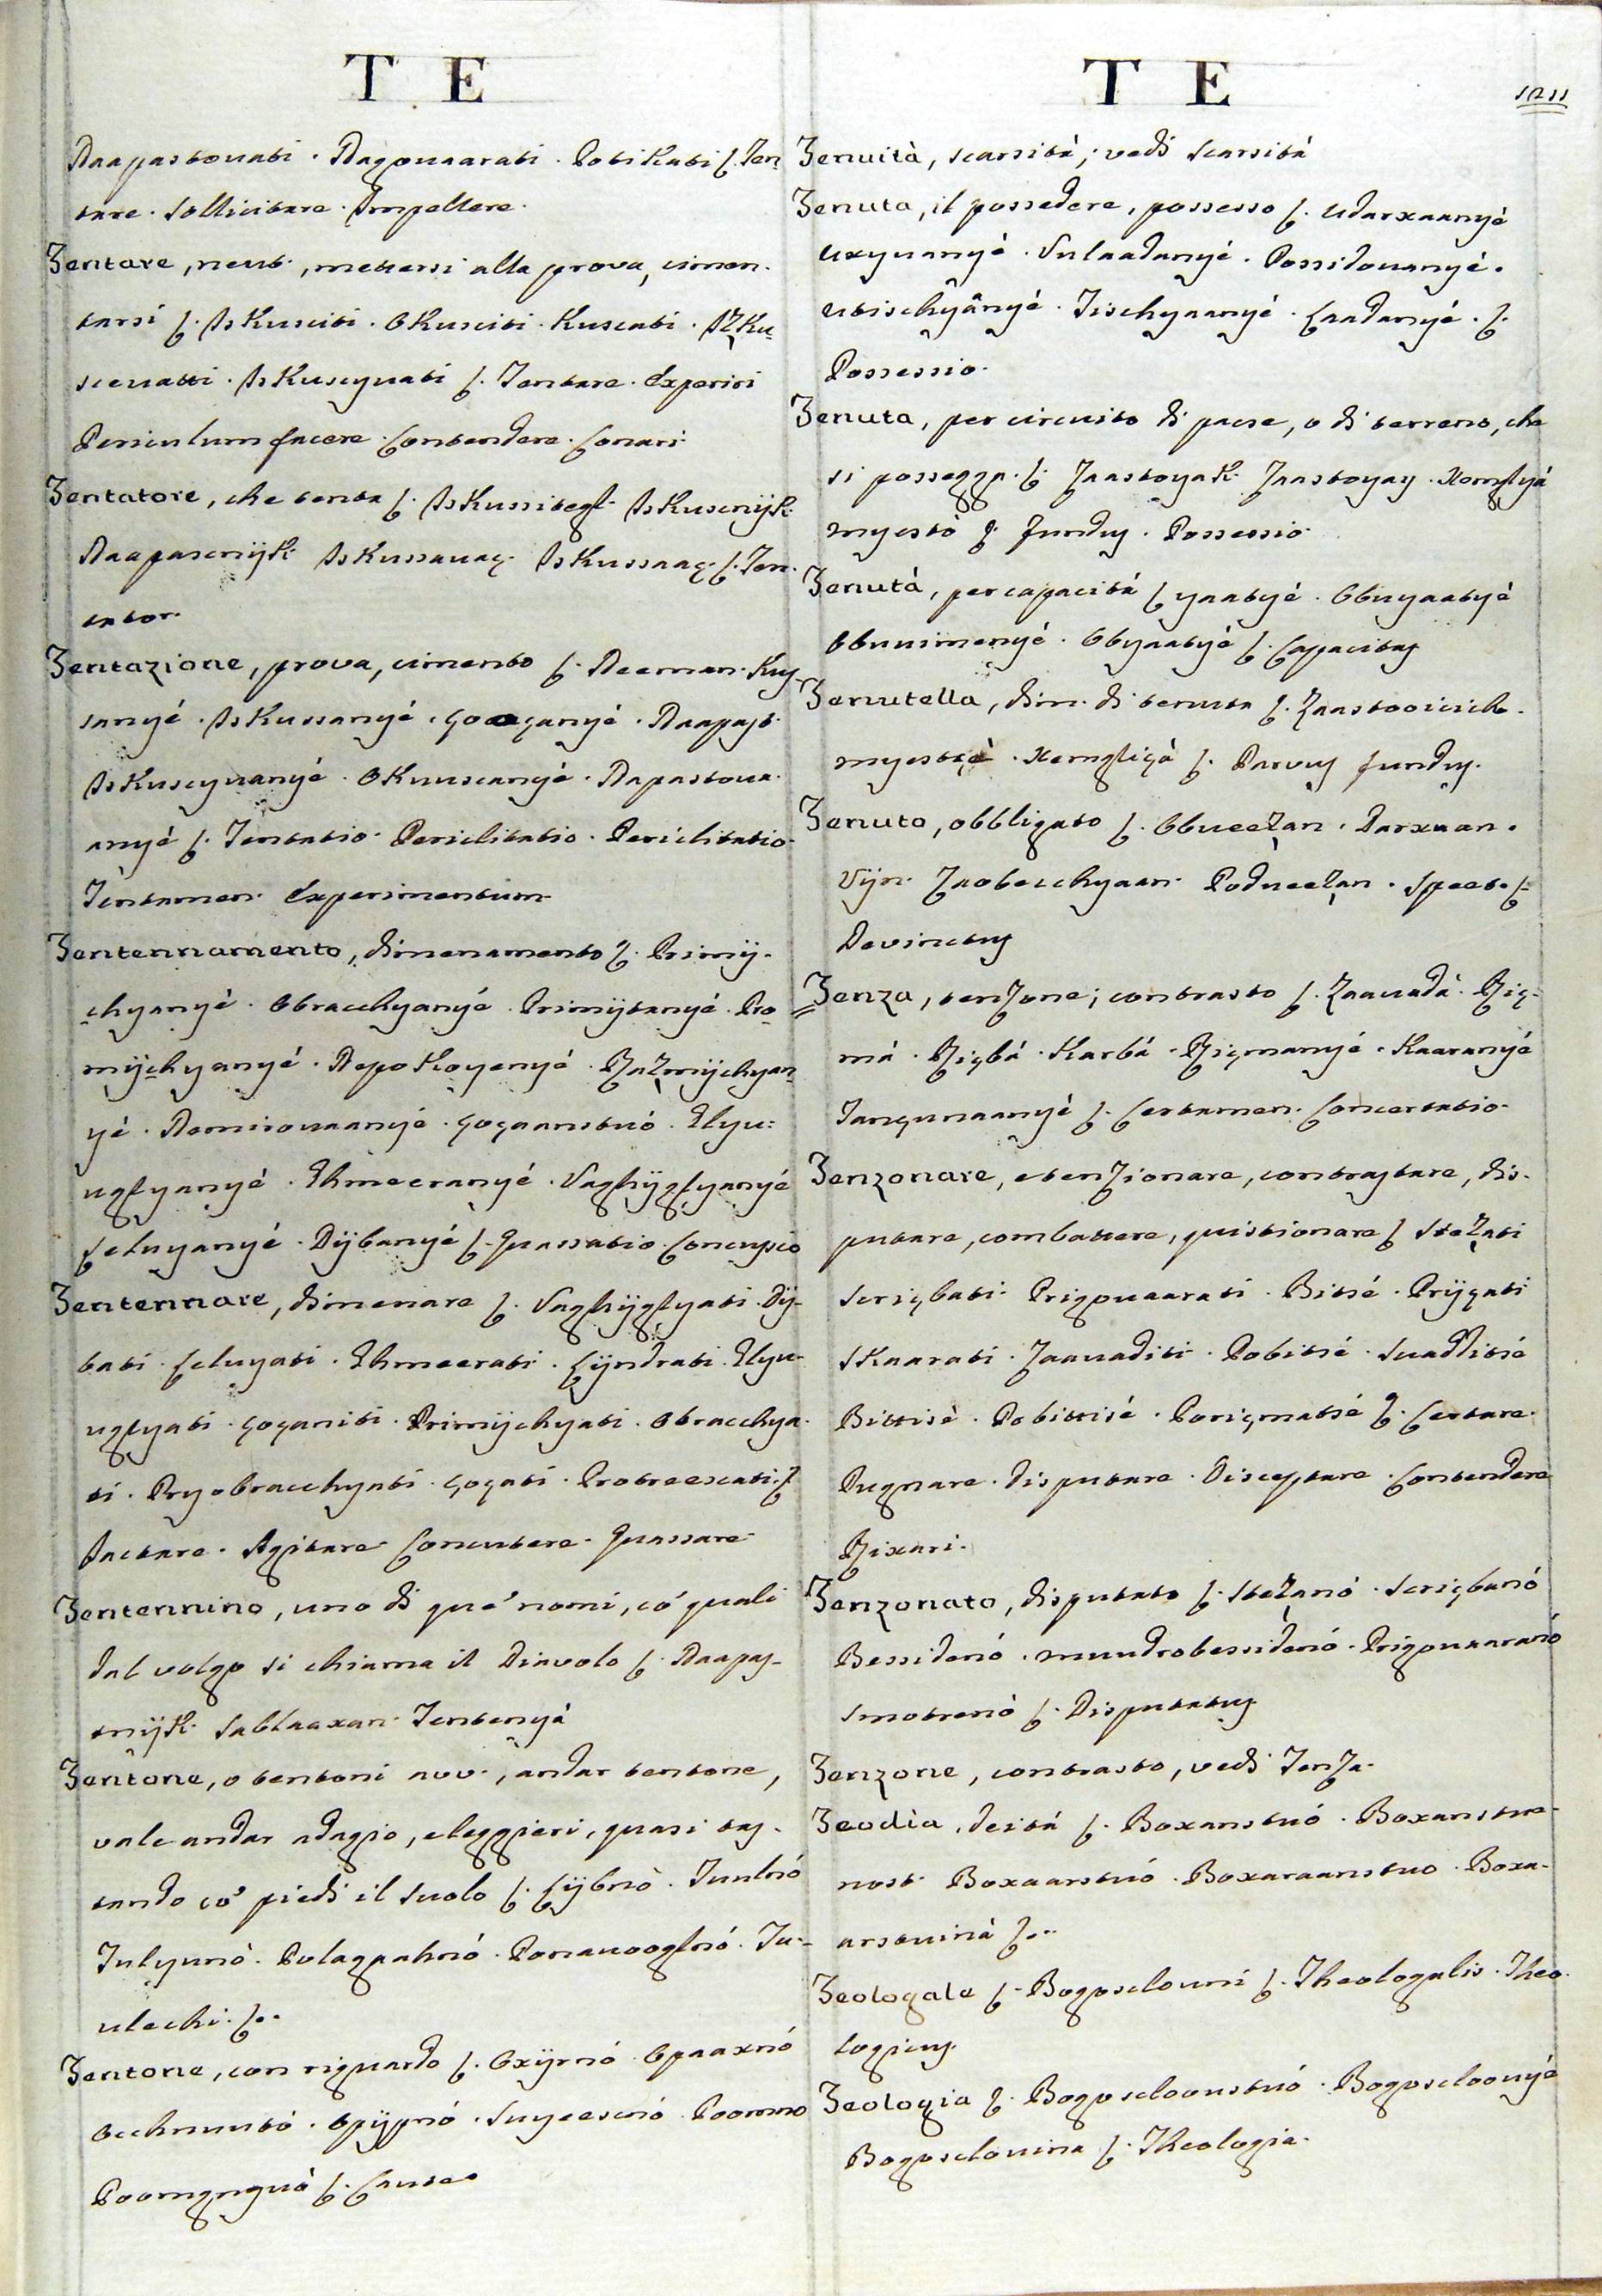 T E
Naapastovati . Nagovaarati . Potikati ʃ. Ten-
tare . Sollicitare . Impellere .
Tentare, neut., mettersi alla prova, cimen-
tarsi ʃ. Iskusciti . Okusciti . Kuscati . IZku-
scevatti . Iskuscyvati ʃ. Tentare . Experiri
Periculum facere . Contendere . Conari .
Tentatore, che tenta ʃ. Iskussitegl . Iskuscnijk .
Naapascnijk . Iskussavaç . Iskussaaç . ʃ. Ten-
tator .
Tentazione, prova, cimento ʃ. Neeman . Kuy-
sanyé . Iskussanyé . çoaçanyé . Naapast .
Iskuscyvanyé . Okuuscanyé . Napastova-
anyé ʃ. Tentatio . Periclitatio . Periclitatio .
Tentamen . Experimentum .
Tentennamento, dimenamento ʃ. Primij-
chyanyé . Obracchyanyé . Primijtanyé . Pro-
mijchyanyé . Nepokoyenyé . RaZmijchyan-
yé . Nemirovaanyé . çoçaanstvó . Elyu-
uglyanyé . Ehmeeranyé . Vaghijglyanyé
ʃeluyanyé . Dijbanyé ʃ. Quassatio . Concussio
Tentennare, dimenare ʃ. Vaghijglyati . Dij-
bati . ʃeluyati . Ehmeerati . ʃijndrati . Elyu-
uglyati . çoçaniti . Primijchyati . Obracchya-
ti . Pryobracchyati . çoçati . Protreescati . ʃ
Iactare . Agitare . Concutere . Quassare .
Tentennino, uno di que' nomi, có quali
dal volgo si chiama il Diavolo ʃ. Naapas-
tnijk . Sablaaxan . Tentenyá
Tentone, o tentoni avv., andar tentone,
vale andar adagio, e leggieri, quasi tas-
tando có piedi il suolo ʃ. ʃijbnò . Tuuhnó
Tulyunò . Polagpahnó . Ponavooglnó . Tu-
ulechi . ʃ..
Tentone, con riguardo ʃ. Oxijrnó . Opaaxnó
occhnuutó . Opijpnó . Suyeescnó . Poomno
Poomgnyvò ʃ. Caute .
T E
1211
Tenuità, scarsitá; vedi scarsitá
Tenuta, il possedere, possesso ʃ. Udarxaanyè
uxyvanyé . Vulaadanyé . Possidovanyé .
utischyânyé . Tischyaanyé . ʃaadanyé . ʃ.
Possessio .
Tenuta, per circuito di paese, o di terreno, che
si possegga . ʃ. Zaastoyak . Zaastoyay . Xemglyá
myestò ʃ. Fundus . Possessio .
Tenutà, per capacitá ʃ yaatyé . Obuyaatyé
obuusimenyé . Obyaatyé ʃ. Capacitas
Tenutella, dim. di tenuta ʃ. Zaastooicich .
myestçè . Xemgliçà ʃ. Parvus fundus .
Tenuto, obbligato ʃ. ObveeZan . Darxaan .
Vijn . Zaobecchyaan . PodveeZan . Speet . ʃ.
Devinctus
Tenza, tenzone; contrasto ʃ. Zaavadà . Riç-
má . Riçbá . Karbá . Riçmanyé . Kaaranyé
Tançunaanyè ʃ. Certamen . Concertatio .
Tenzonare, e tenzionare, contrastare, dis-
putare, combattere, quistionare ʃ SteZati
Scriçbati . Prigovaarati . Bitsé . Prijçati
Skaarati . Zaavaditi . Pobitsé . Svaditsé
Bittisè . Pobittisé . Poriçmatsé ʃ. Certare .
Pugnare . Disputare . Disceptare . Contendere
Rixari .
Tenzonato, disputato ʃ. SteZanó . Scriçbanó
Bessidenó . muudrobessidenó . Prigovaaranó
Smotrenò ʃ. Disputatus
Tenzone, contrasto, vedi Tenza .
Teodìa, deitá ʃ. Boxanstvó . Boxanstve-
nost . Boxaarstvó . Boxaraanstvo . Boxa-
arstvinà ʃ...
Teologale ʃ. Bogosclovni ʃ. Theologalis . Theo-
logicus .
Teologia ʃ. Bogoscloovstvó . Bogoscloovyé
Bogosclovina ʃ. Theologia .